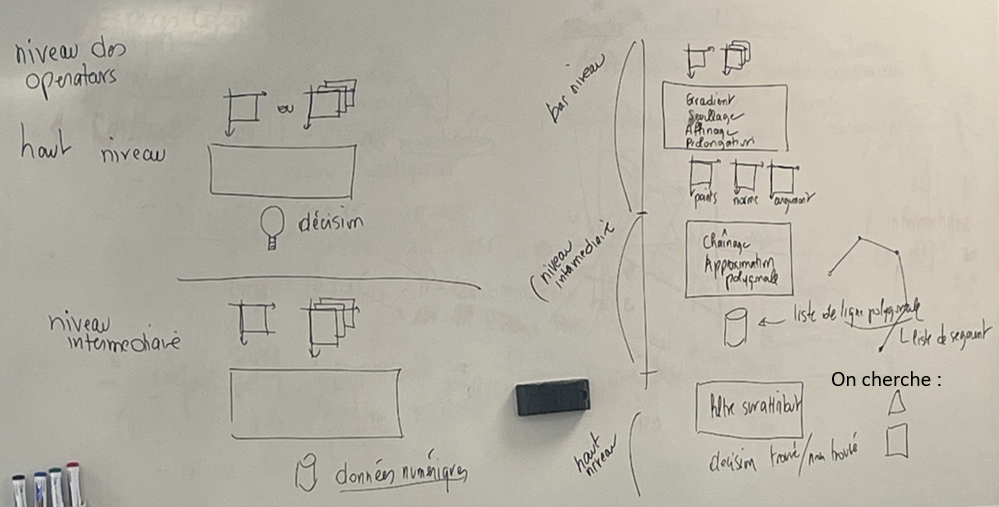 niveau des
operatars
haut niveau
ou
décision
niveau
intermediaire
données numériques
bas niveau
Gradient
Seuillage
Affinage
Prolongation
points norme argument
niveau
intermediaire
Chaînage
Approximation
polygonale
liste de ligne polygonale
liste de segment
On cherche :
haut
niveau
filtre sur attribut
decision trouvé/non trouvé